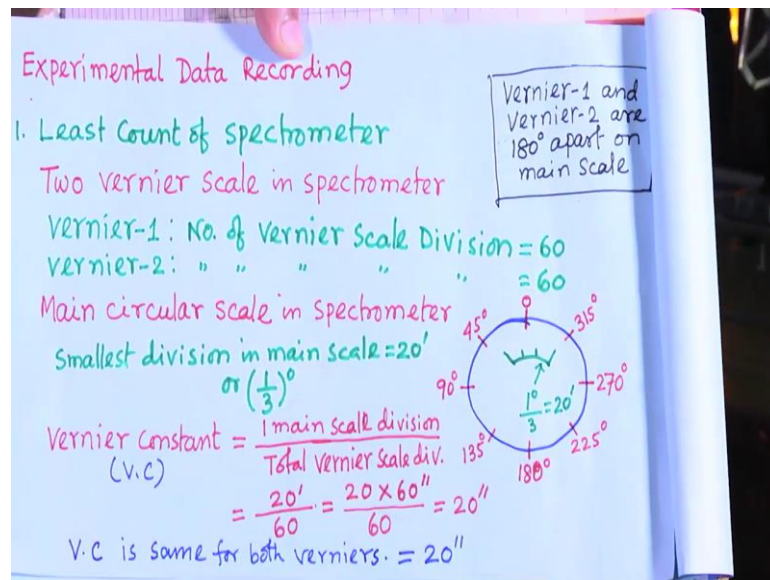 Experimental Data Recording
Vernier-1 and
Vernier-2 are
180° apart on
main Scale
1. Least Count of spectrometer
Two vernier scale in spectrometer
Vernier-1: No. of Vernier Scale Division = 60
Vernier-2: " " " " " = 60
Main circular scale in spectrometer
Smallest division in main scale = 20'
or (1/3)°
0
315°
270°
225°
180°
135°
90°
45°
1°/3 = 20'
Vernier Constant = 1 main scale division / Total Vernier Scale div.
(V.C)
= 20'/60 = 20 X 60''/60 = 20''
V.C is same for both verniers. = 20''